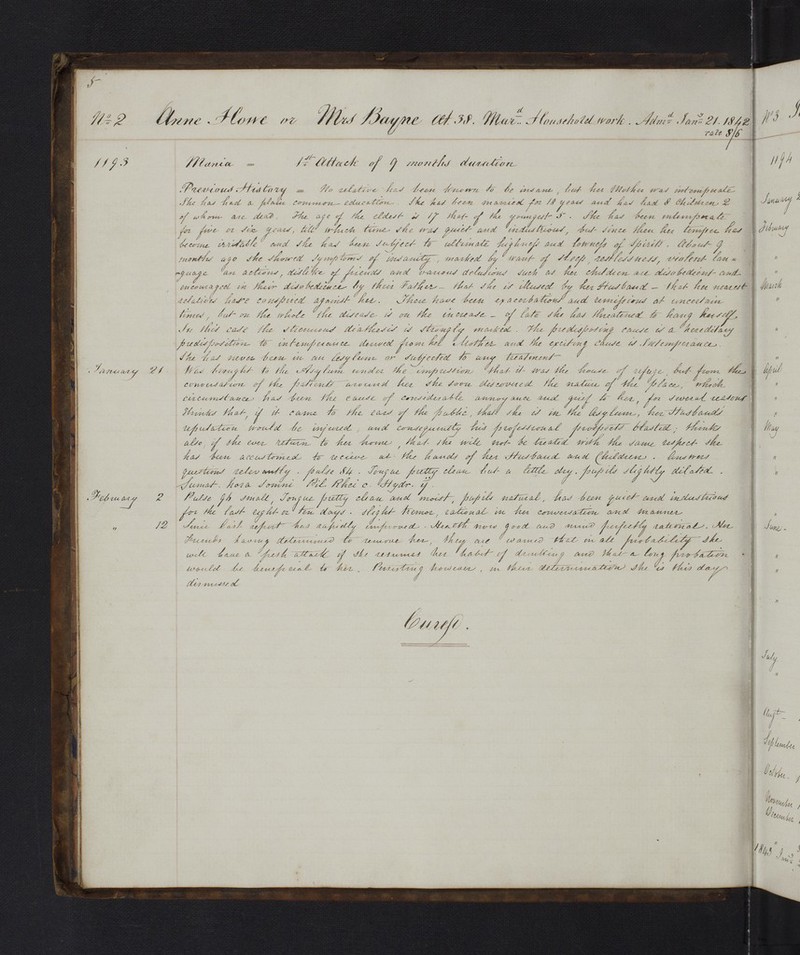 8
No 2 Anne Howe or Mrs Bayne Æt 38. Mard. Household work. Admd. Jany 21. 1842
rate 8/6
1193 Mania = 1st Attack of 9 months duration
Previous History = No relative has been known to be insane, but her Mother was intemperate
She has had a plain common education. She has been married for 18 years and has had 8 Children 2
of whom are dead. The age of the eldest is 17 that of the youngest 5. She has been intemperate
for five or six years, till which time she was quiet and industrious, but since then her temper has
become irritable and she has been subject to ultimate highness and lowness of Spirits. About 9
months ago she showed Symptoms of insanity, marked by want of sleep, restlessness, violent lan=
=guage an actions, dislike of friends and various delusions such as her children are disobedient and
encouraged in their disobedience by their Father – that she is illused by her Husband – that her nearest
relations have conspired against her. There have been exacerbations and remissions at uncertain
times, but on the whole the disease is on the increase – of late she has threatened to hang herself.
In this case the strumous diathesis is strongly marked. The predisposing cause is a hereditary
predisposition to intemperance derived from her Mother and the exciting cause is Intemperance
She has never been in an Asylum or subjected to any treatment
January 21 Was brought to the Asylum under the impression that it was the house of refuge, but from the
conversation of the patients around her she soon discovered the nature of the place, which
circumstance has been the cause of considerable annoyance and grief to her, for several reasons
thinks that, if it came to the ears of the public, that she is in the Asylum, her Husbands
reputation would be injured, and consequently his professional prospects blasted; thinks
also, if she ever return to her home, that she will not be treated with the same respect she
has been accustomed to receive at the hands of her Husband and Children. Answers
questions relevantly. pulse 84. Tongue pretty clean but a little dry. pupils slightly dilated.
Sumat. hora Somni Pil Rhei c Hydr. ij
February 2 Pulse 96 small, Tongue pretty clean and moist, pupils natural, has been quiet and industrious
for the last eight or ten days. slight tremor, rational in her conversation and manner
" 12 Since last report has rapidly improved. Health now good and mind perfectly rational. Her
friends having determined to remove her, they are warned that in all probability she
will have a fresh attack if she resumes her habit of drinking and that a long probation
would be beneficial to her. Persisting however, in their determination she is this day
dismissed
Cured.
No 3
1194
January
February
"
March
"
"
"
April
"
"
May
"
"
June.
"
"
"
July
"
Augt
September
October
November
December
1843 Jany